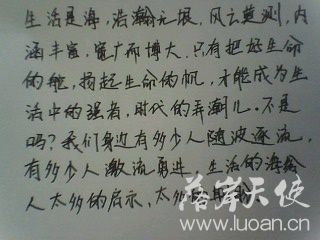 生活是海，浩瀚无垠，风云莫测，内
涵丰富，宽广而博大。只有把好生命
的舵，扬起生命的帆，才能成为生
活中的强者，时代的弄潮儿。不是
吗？我们身边有多少人随波逐流，
有多少人激流勇进。生活的海给
人太多的启示，太多的
落岸天使
www.luoan.cn